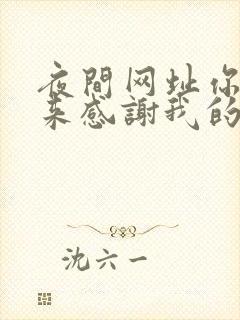 夜間网址你
来感謝我的
沈六一